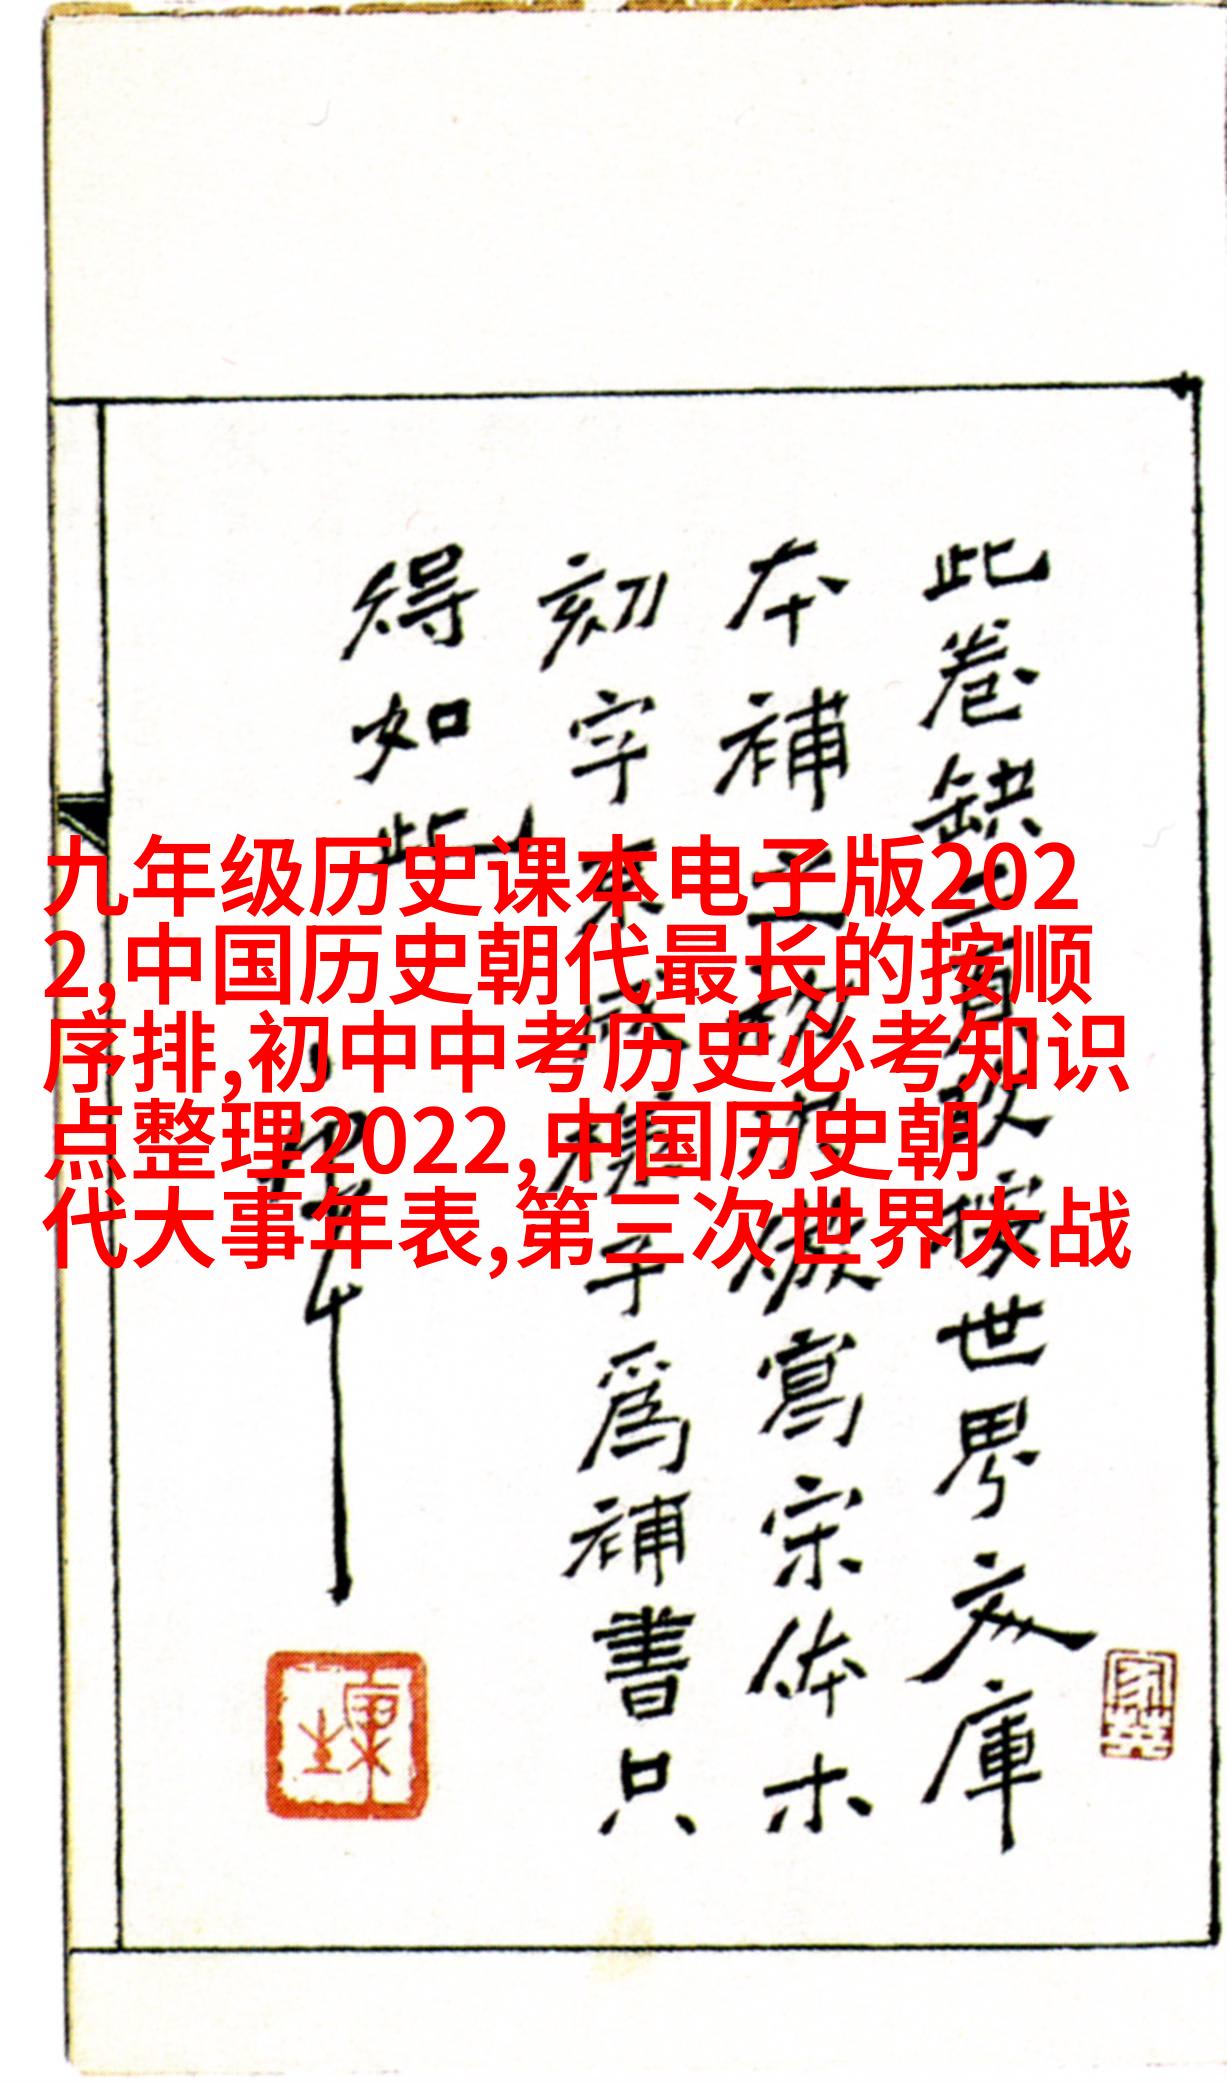 此卷缺二頁世界文庫
本補之初次寫宋体木
刻字不成樣子爲補書只
得如此
九年级历史课本电子版202
2,中国历史朝代最长的按顺
序排,初中中考历史必考知识
点整理2022,中国历史朝
代大事年表,第三次世界大战